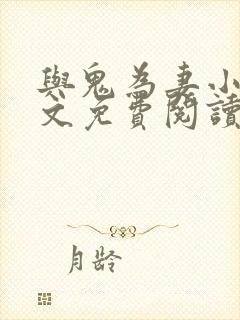 與鬼為妻小
文免費閱讀
月齡